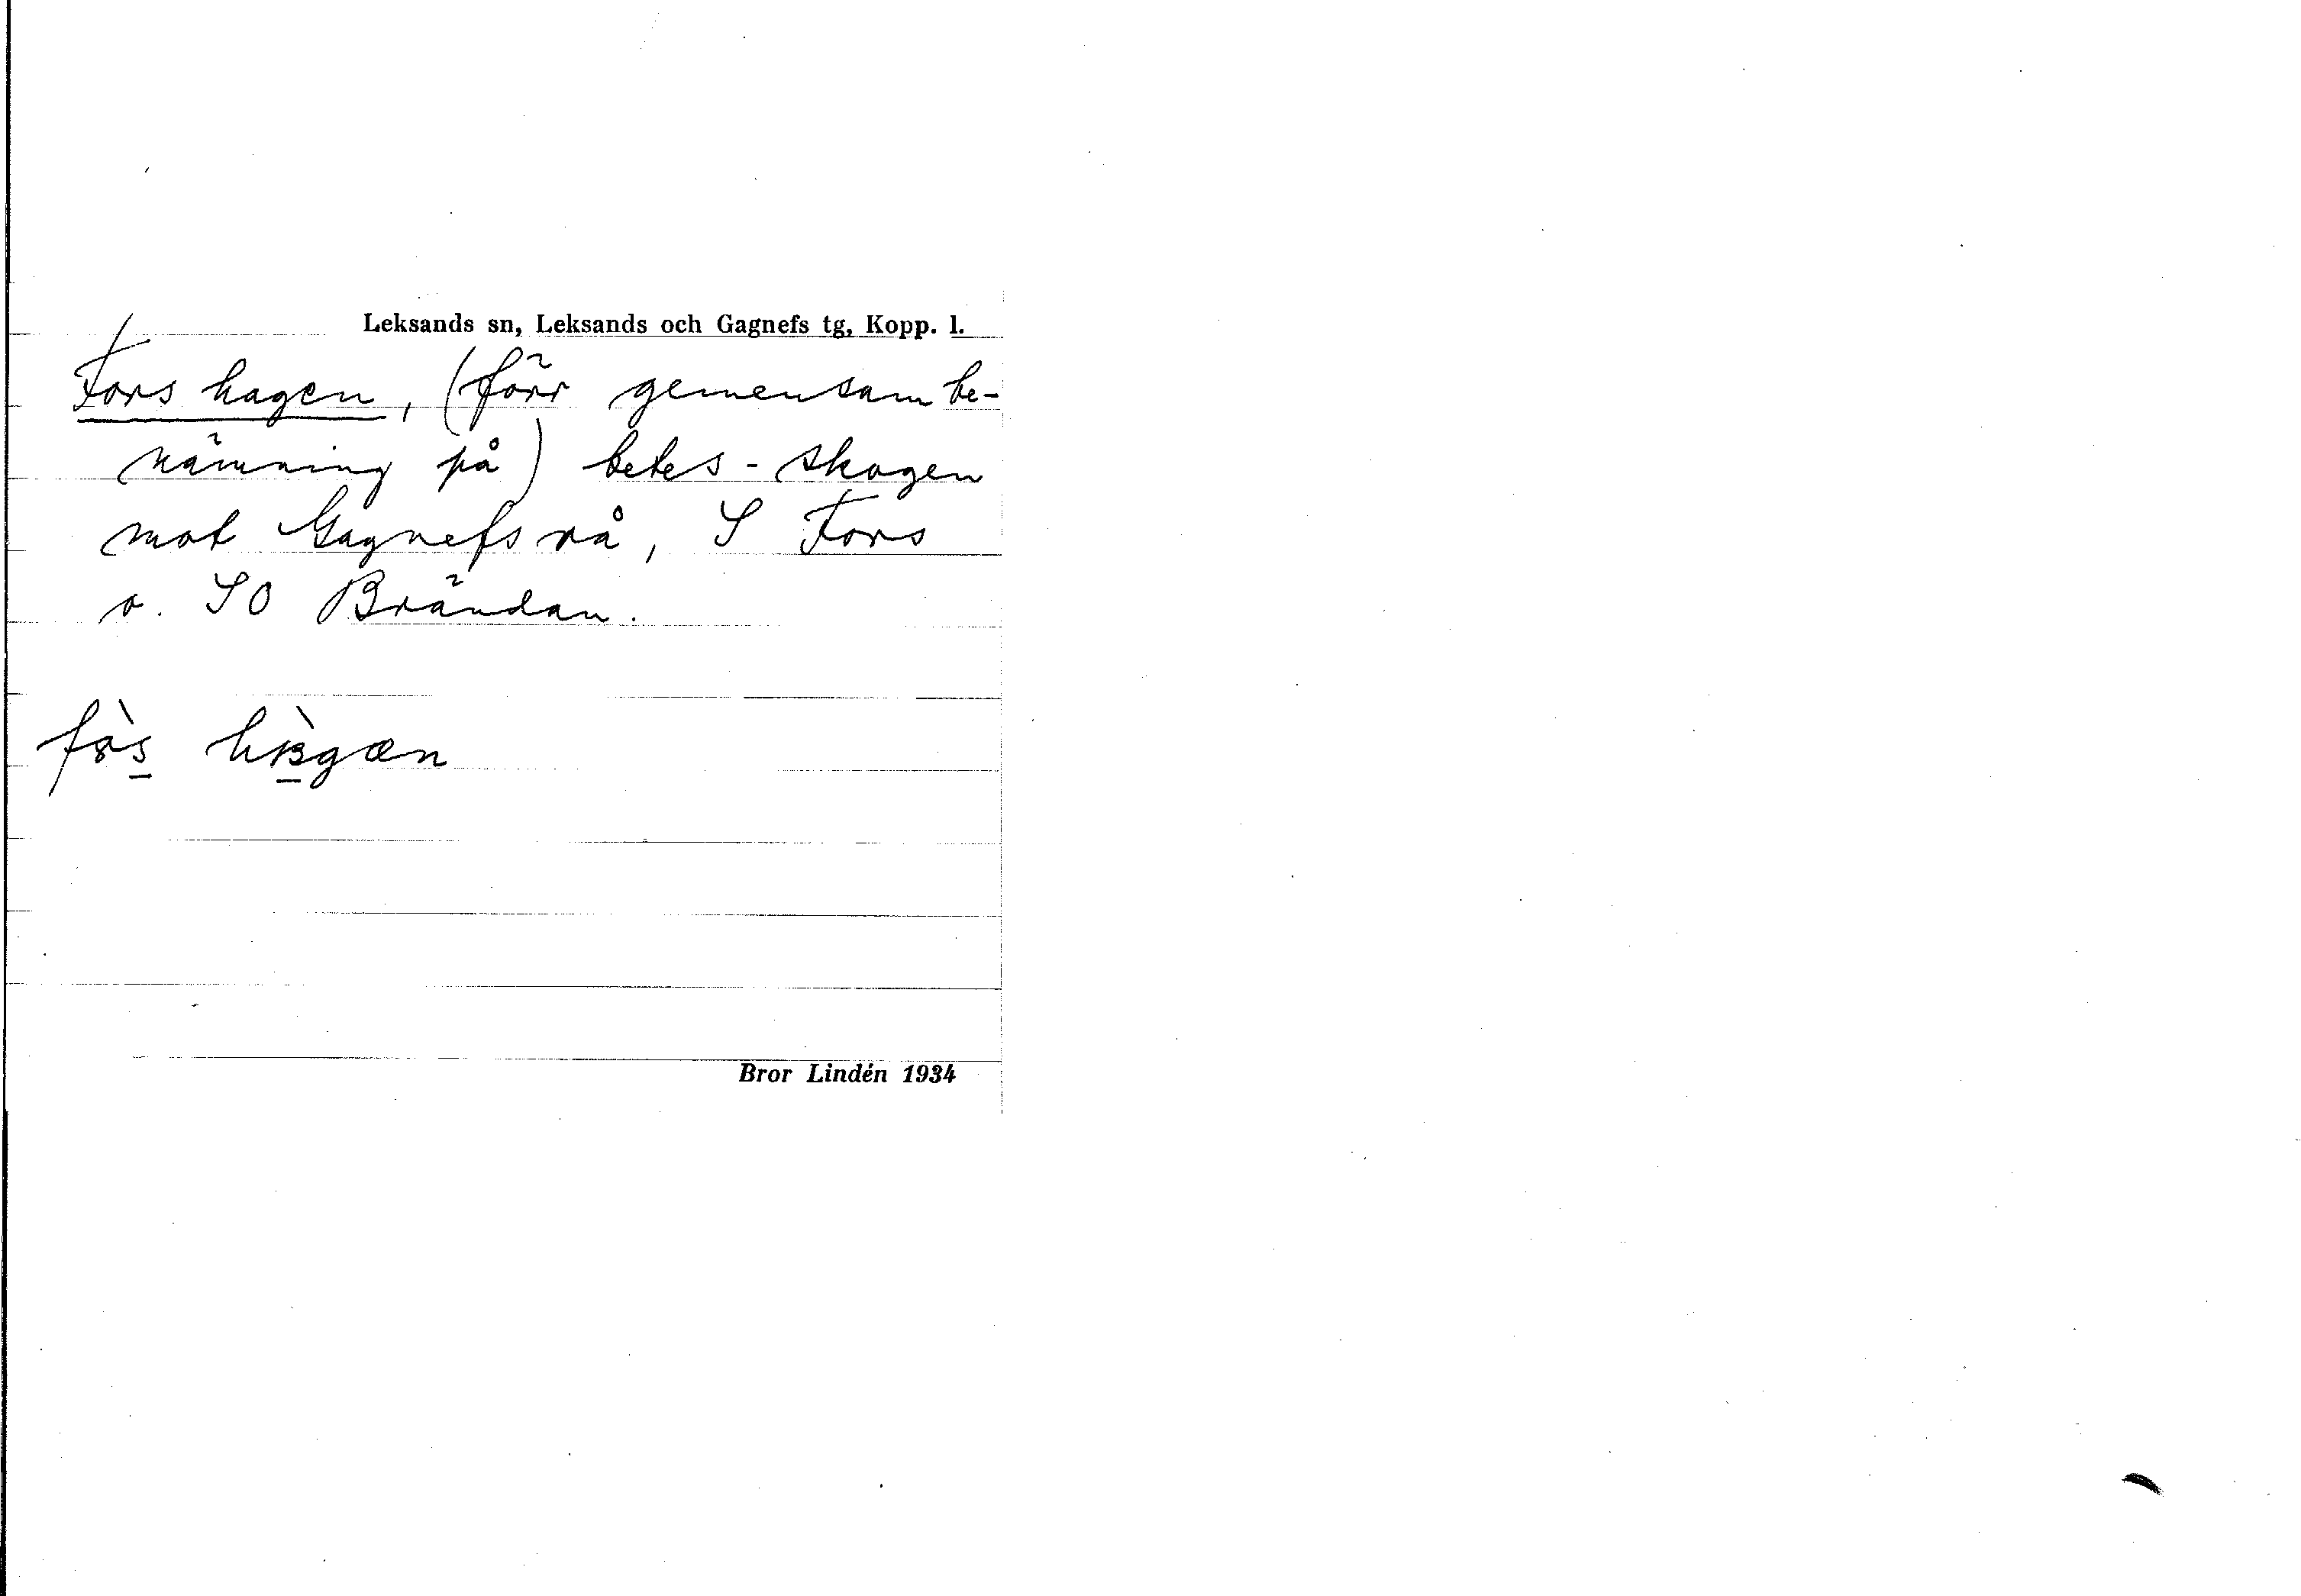 Leksands sn, Leksands och Gagnefs tg, Kopp. l.
Fors hagen, (förr gemensam be-
nämning på) betes-skogen
mot Gagnefs rå, S Fors
o. SO Brändan.
Bror Lindén 1934